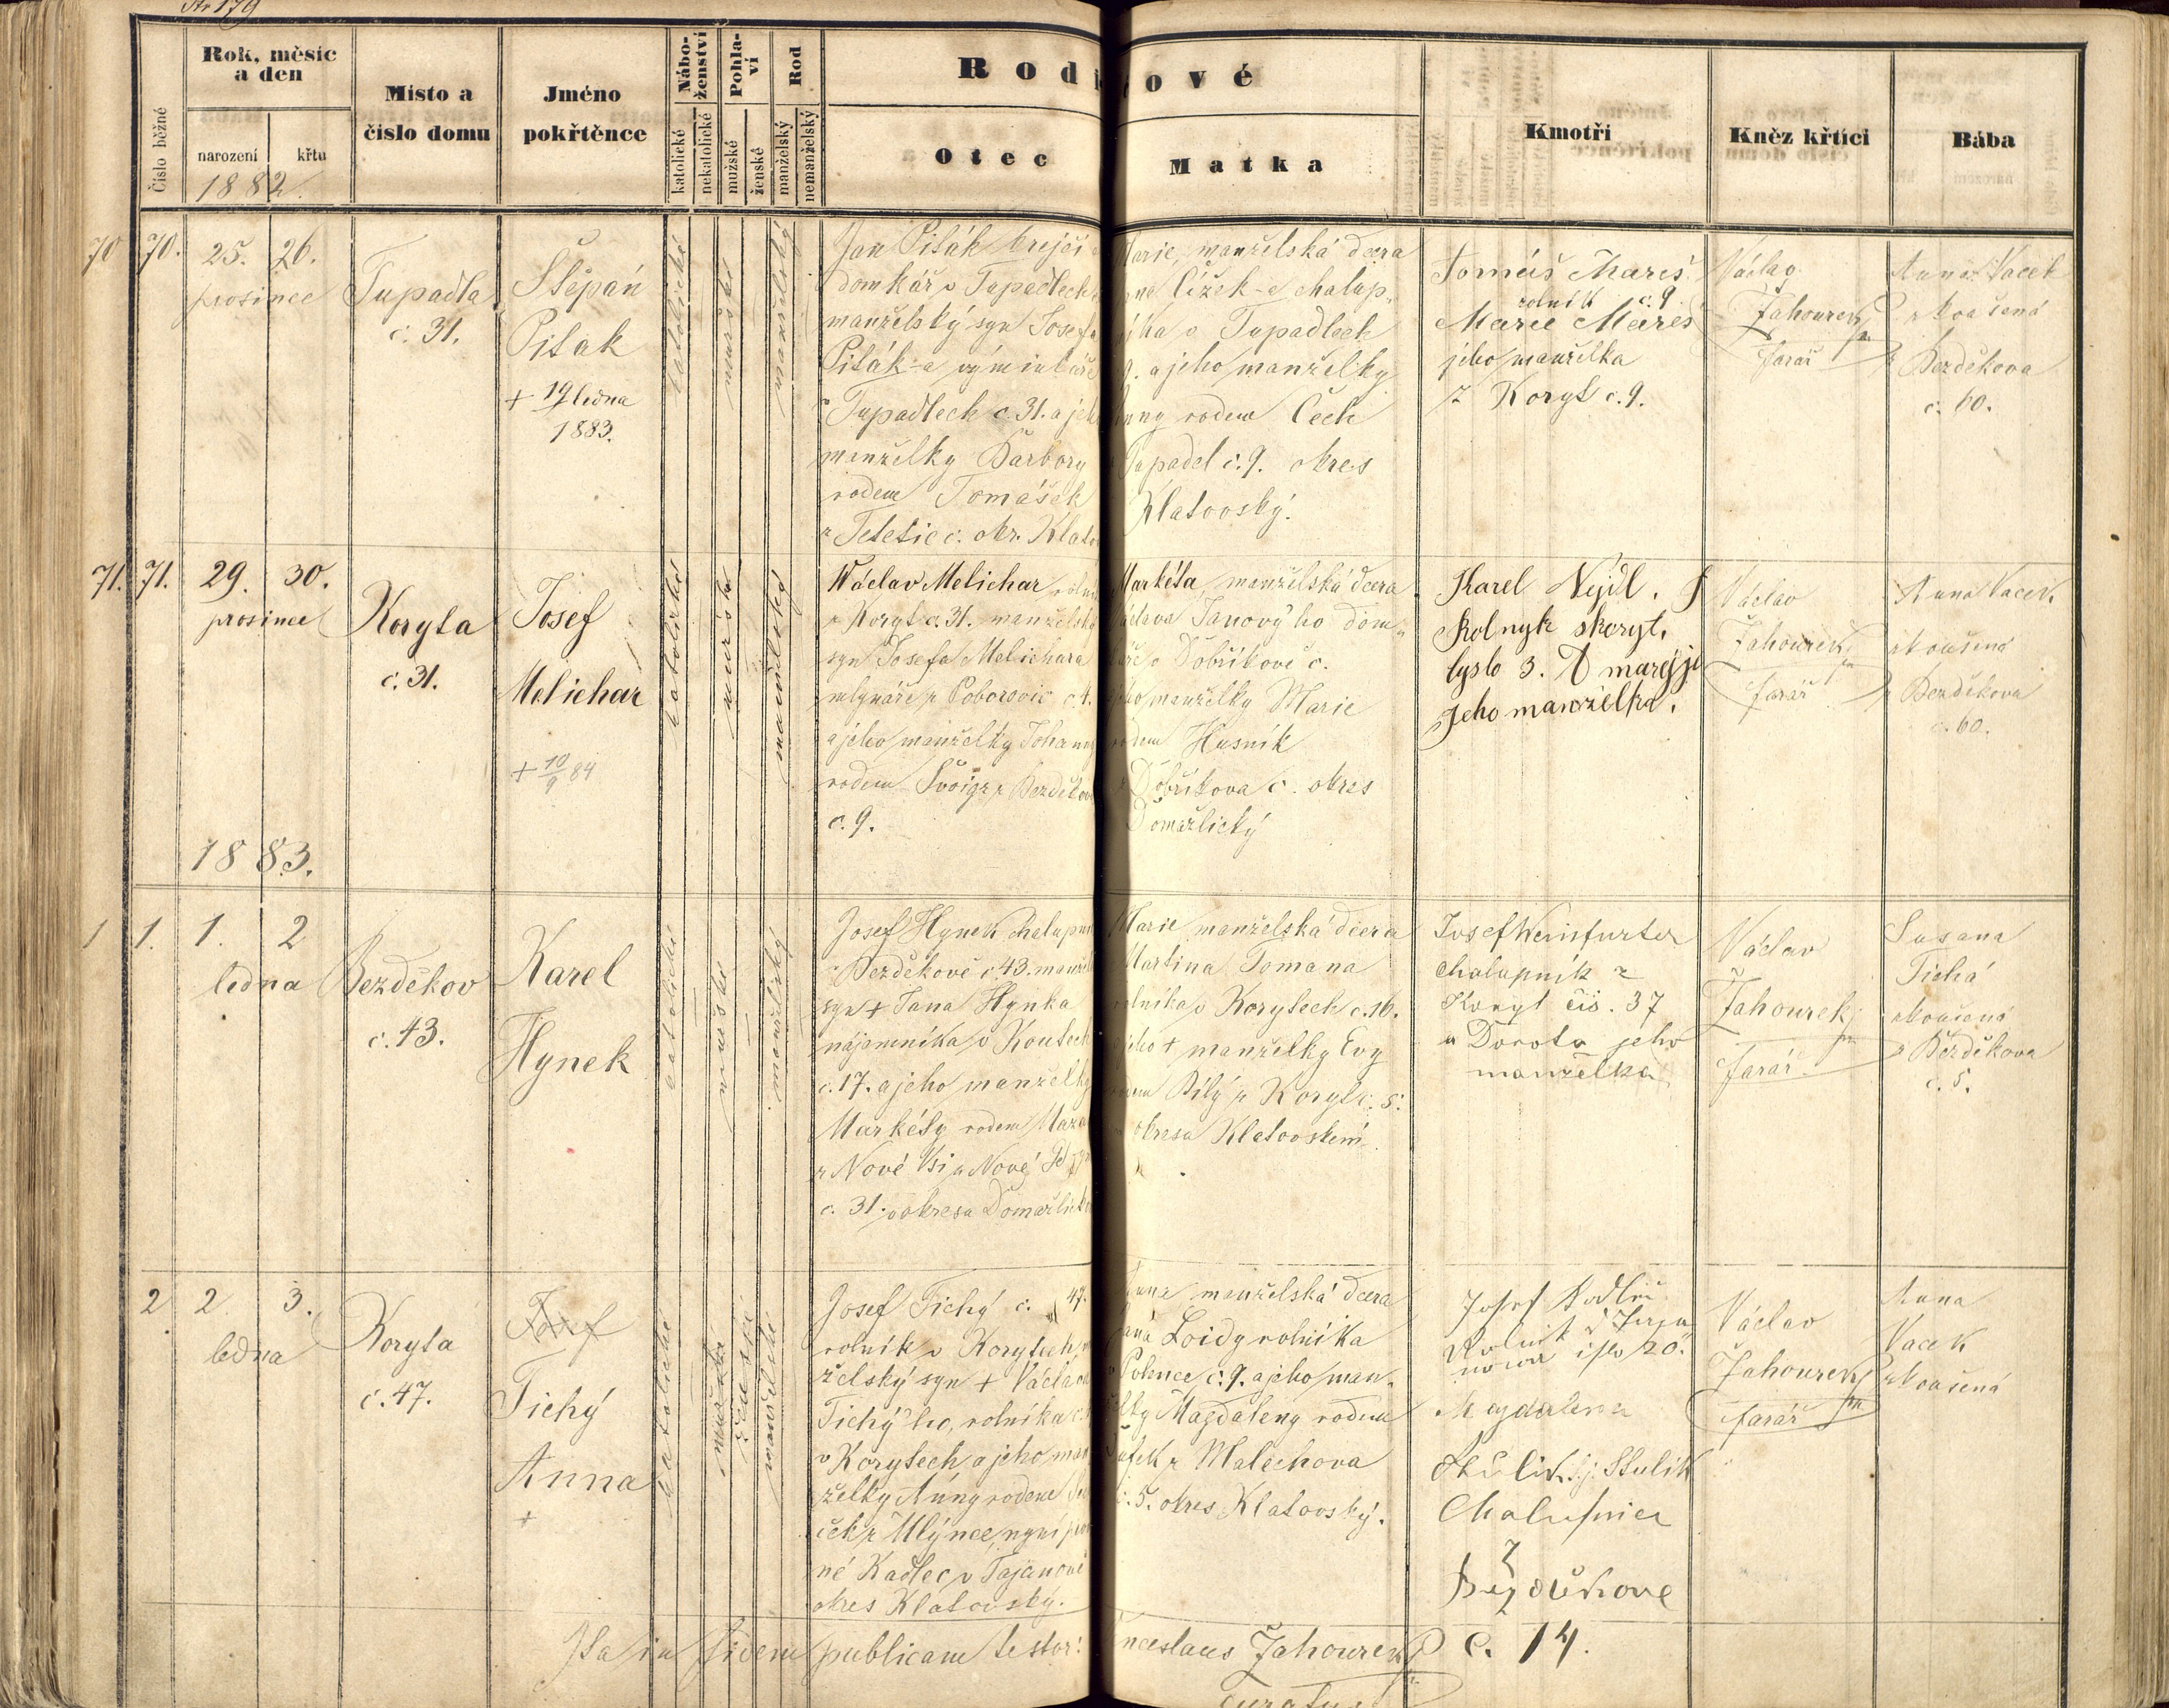 Rok, měsíc
a den
narození
křtu
1882.
Číslo běžné
Místo a
číslo domu
Jméno
pokřtěnce
Nábo-
ženství
katolické
nekatolické
Pohla-
ví
mužské
ženské
Rod
manželský
nemanželský
Rodičové
Otec
Matka
Kmotři
Kněz křtící
Bába
70
70.
25. 26.
prosince
Tupadla
č. 31.
Štěpán
Piták
+ 19 ledna
1883.
katolické
mužské
manželský
Jan Piták krejčí
domkář v Tupadlech
manželský syn Josefa
Piták-a výminkáře
v Tupadlech č. 31. a jeho
manželky Barbory
rodem Tomášek
z Teletic č. okr. Klato
Marie, manželská dcera
Čížek-a chalup-
níka v Tupadlech
9. a jeho manželky
Anny rodem Čech
z Tupadel č. 9. okres
Klatovský.
Tomáš Mareš
rolník č. 9
Marie Mareš
jeho manželka
z Koryt č. 9.
Václav
Žahourek
farář
Anna Vacek
zkoušená
z Bezděkova
č. 60.
71.
71.
29. 30.
prosince
Koryta
č. 31.
Josef
Melichar
+ 10/9 84
katolické
mužské
manželský
Václav Melichar rolník
z Koryt č. 31. manželský
syn Josefa Melichara
mlynáře z Poborovic č. 4.
a jeho manželky Johanny
rodem Švoigr z Bezděkova
č. 9.
Markéta, manželská dcera
Václava Janový'ho dom-
káře v Dobříkově č.
jeho manželky Marie
rodem Husník
z Dobříkova č. okres
Domažlický
Karel Nejdl.
Rolnyk skoryt.
lyslo 3. A maryje
Jeho manželka.
Václav
Žahourek
farář
Anna Vacek
zkoušená
z Bezděkova
č. 60.
1883.
1
1.
1. 2
ledna
Bezděkov
č. 43.
Karel
Hynek
katolické
mužské
manželský
Josef Hynek chalupník
v Bezděkově č. 43. manžel
syn + Jana Hynka
nájemníka v Koutech
č. 17. a jeho manželky
Markéty rodem
z Nové Vsi u Nové
č. 31. v okresu Domažlick
Marie manželská dcera
Martina Tomana
rolníka v Korytech č. 16.
a jeho + manželky Evy
rodem Bílý z Koryt č. 5.
v okresu Klatovském.
Josef Weinfurter
chalupník z
Koryt čís. 37
a Dorota jeho
manželka
Václav
Žahourek
farář
Susana
Tichá
zkoušená
z Bezděkova
č. 5.
2
2. 3.
ledna
Koryta
č. 47.
Josef
Tichý
Anna
+
katolické
mužské
ženské
manželské
Josef Tichý č. 47.
rolník v Korytech,
želský syn + Václava
Tichý'ho, rolníka
v Korytech a jeho man
želky Anny rodem
ček z Mlýnce, nyní
né Kadlec v Tajanově
okres Klatovský.
Anna manželská dcera
Jana Loidy rolníka
v Polence č. 9. a jeho man-
želky Magdaleny rodem
z Malechova
č. 5. okres Klatovský.
Josef
Rolnik
čislo 20.
Magdalena
Stulik
Chalupnice
z
Bezděkova
č. 14.
Václav
Žahourek
farář
Anna
Vacek
zkoušená
Ita in fidem publicam testor: Venceslaus Žahourek
curatus